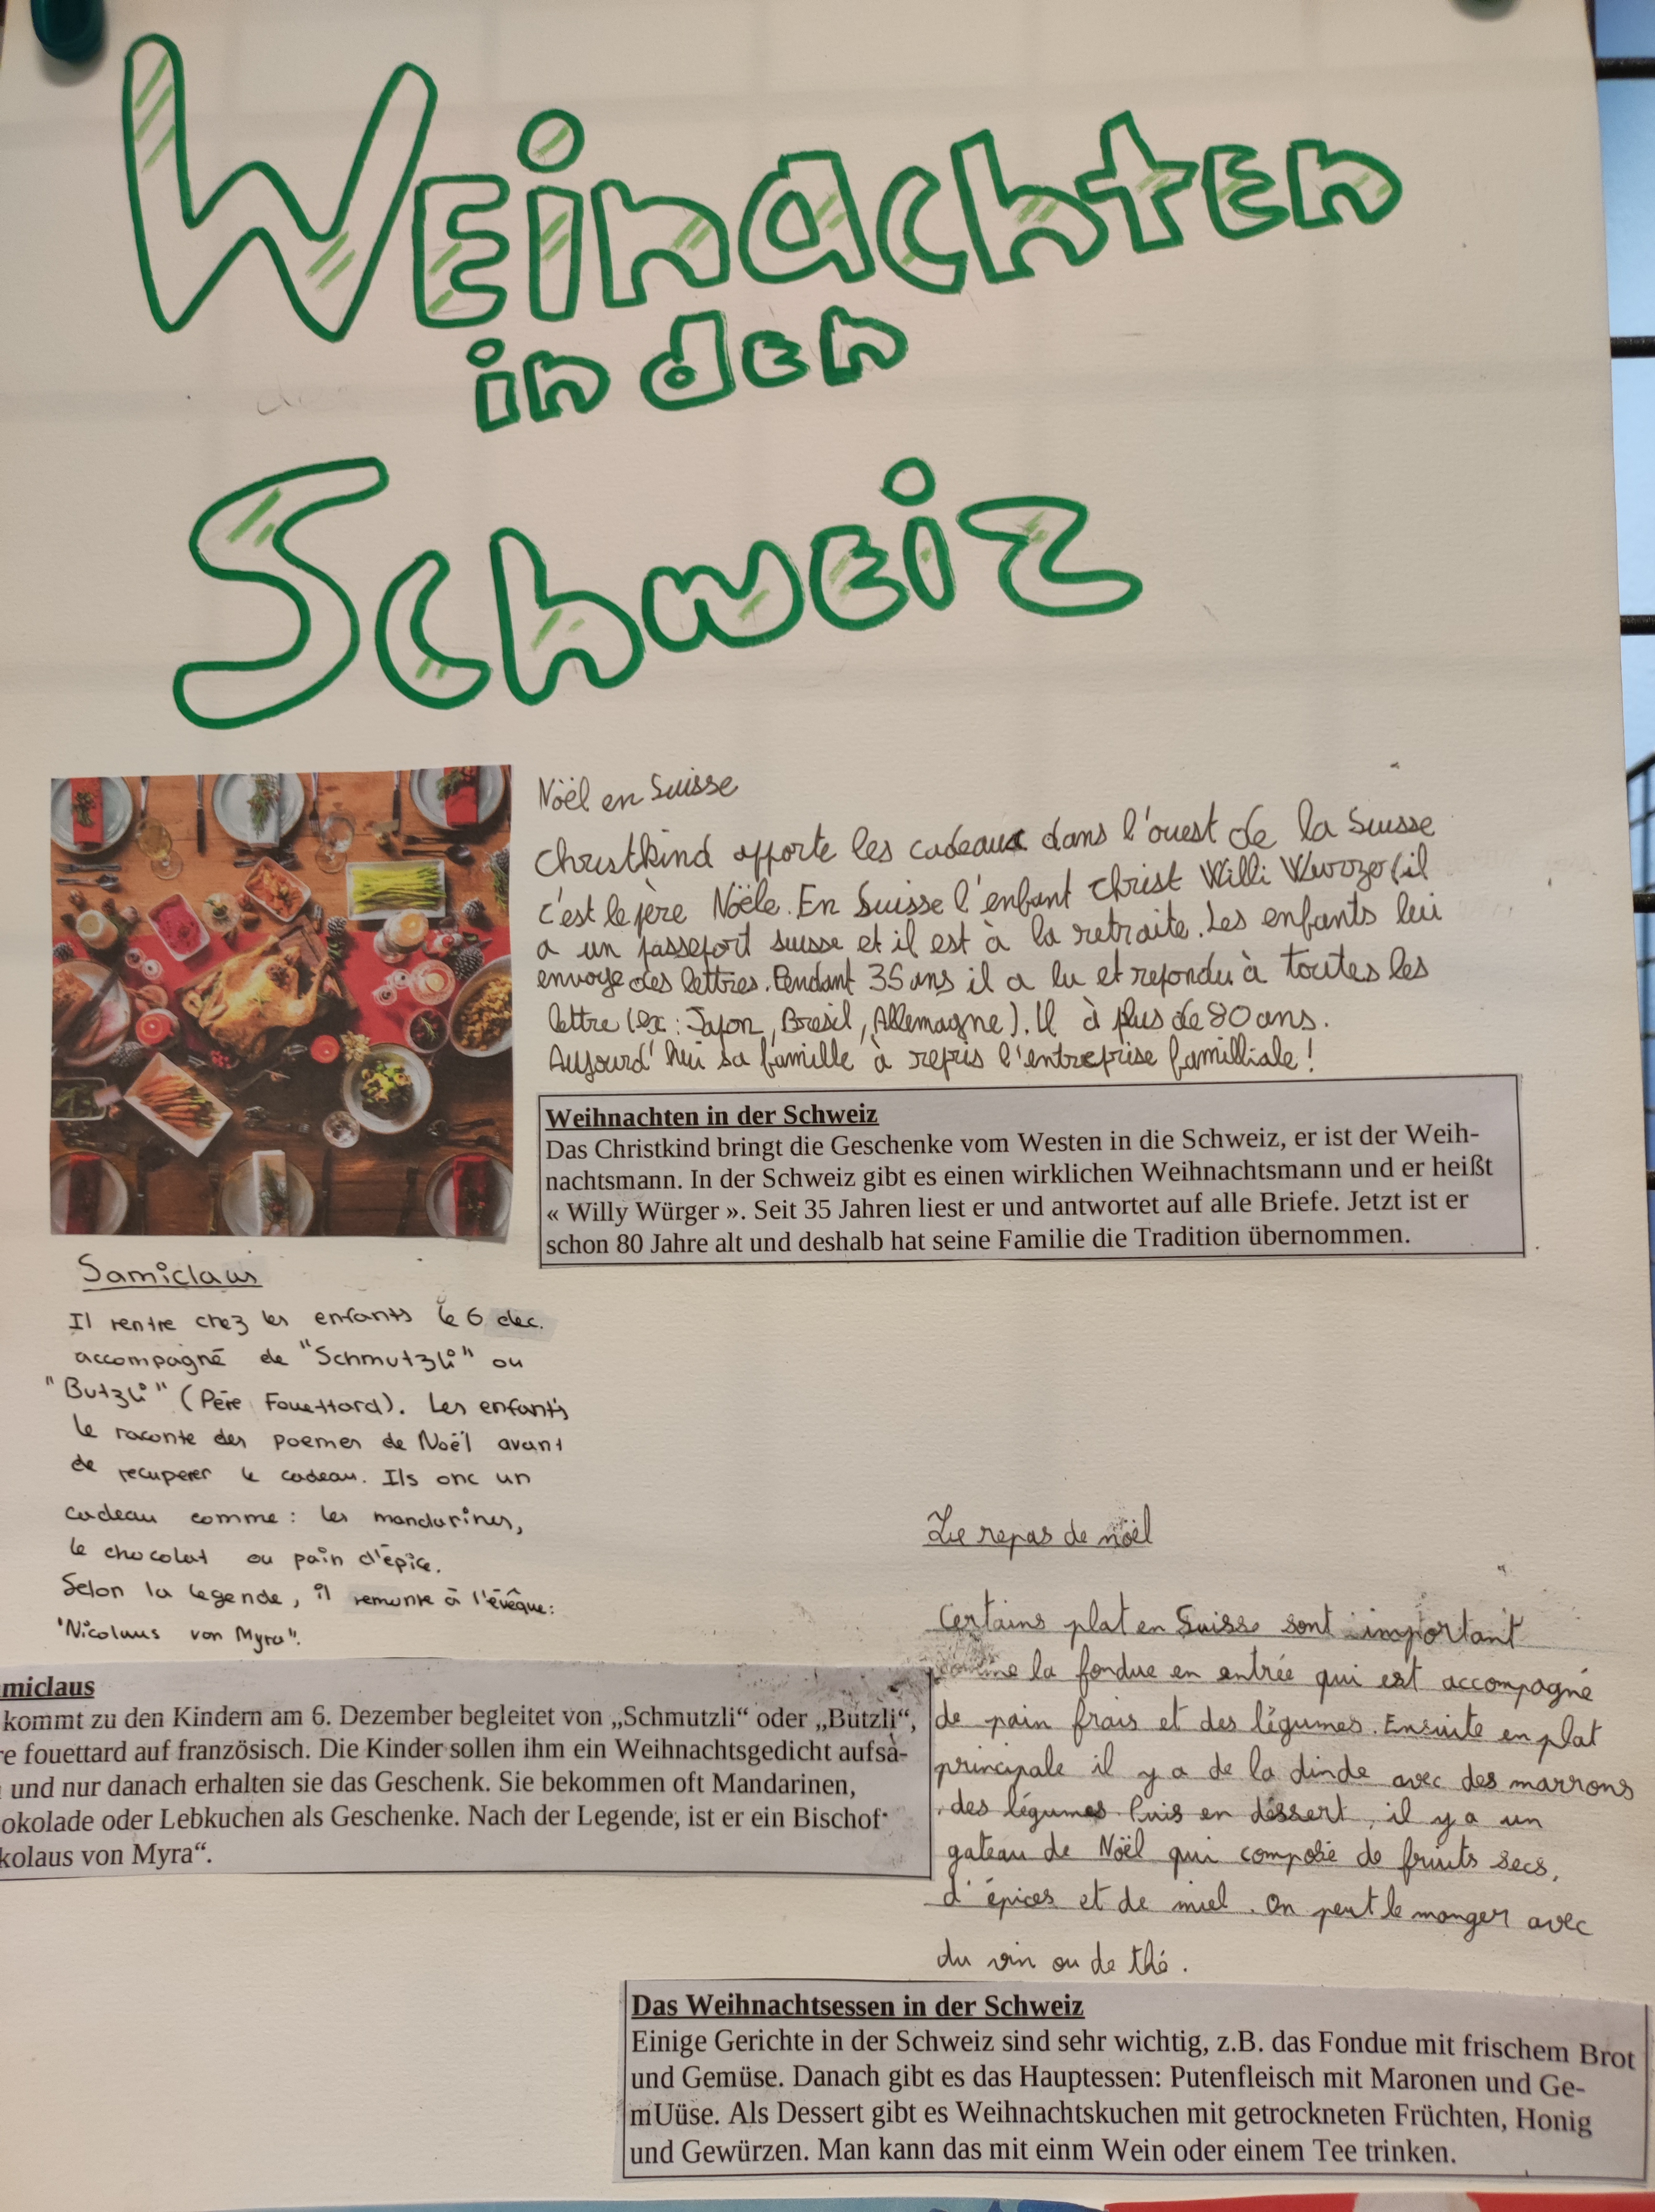 Weinachten
in den
Schweiz
Nöël en Suisse
Christkind apporte les cadeaux dans l'ouest de la Suisse
c'est le père Noële. En Suisse l'enfant christ Willi (il
a un passeport suisse et il est à la retraite. Les enfants lui
envoye des lettres. Pendant 35 ans il a lu et repondu à toutes les
lettre (ex: Japon, Bresil, Allemagne). Il à plus de 80 ans.
Aujourd'hui sa famille à repris l'entreprise familliale!
Weihnachten in der Schweiz
Das Christkind bringt die Geschenke vom Westen in die Schweiz, er ist der Weih-
nachtsmann. In der Schweiz gibt es einen wirklichen Weihnachtsmann und er heißt
« Willy Würger ». Seit 35 Jahren liest er und antwortet auf alle Briefe. Jetzt ist er
schon 80 Jahre alt und deshalb hat seine Familie die Tradition übernommen.
Samiclaus
Il rentre chez les enfants le 6 dec.
accompagné de "Schmutzli" ou
"Butzli" (Père Fouettard). Les enfants
le raconte des poemes de Noël avant
de recuperer le cadeau. Ils onc un
cadeau comme: les mandarines,
le chocolat ou pain d'épice.
Selon la legende, il remonte à l'évêque:
"Nicolaus von Myra".
miclaus
kommt zu den Kindern am 6. Dezember begleitet von „Schmutzli“ oder „Bützli“,
re fouettard auf französisch. Die Kinder sollen ihm ein Weihnachtsgedicht aufsa-
und nur danach erhalten sie das Geschenk. Sie bekommen oft Mandarinen,
okolade oder Lebkuchen als Geschenke. Nach der Legende, ist er ein Bischof
kolaus von Myra“.
Le repas de noël
Certains plat en Suisse sont important
comme la fondue en entrée qui est accompagné
de pain frais et des légumes. Ensuite en plat
principale il y a de la dinde avec des marrons
des légumes. Puis en déssert, il y a un
gateau de Noël qui composé de fruits secs,
d'épices et de miel. On peut le manger avec
du vin ou de thé.
Das Weihnachtsessen in der Schweiz
Einige Gerichte in der Schweiz sind sehr wichtig, z.B. das Fondue mit frischem Brot
und Gemüse. Danach gibt es das Hauptessen: Putenfleisch mit Maronen und Ge-
mUüse. Als Dessert gibt es Weihnachtskuchen mit getrockneten Früchten, Honig
und Gewürzen. Man kann das mit einm Wein oder einem Tee trinken.